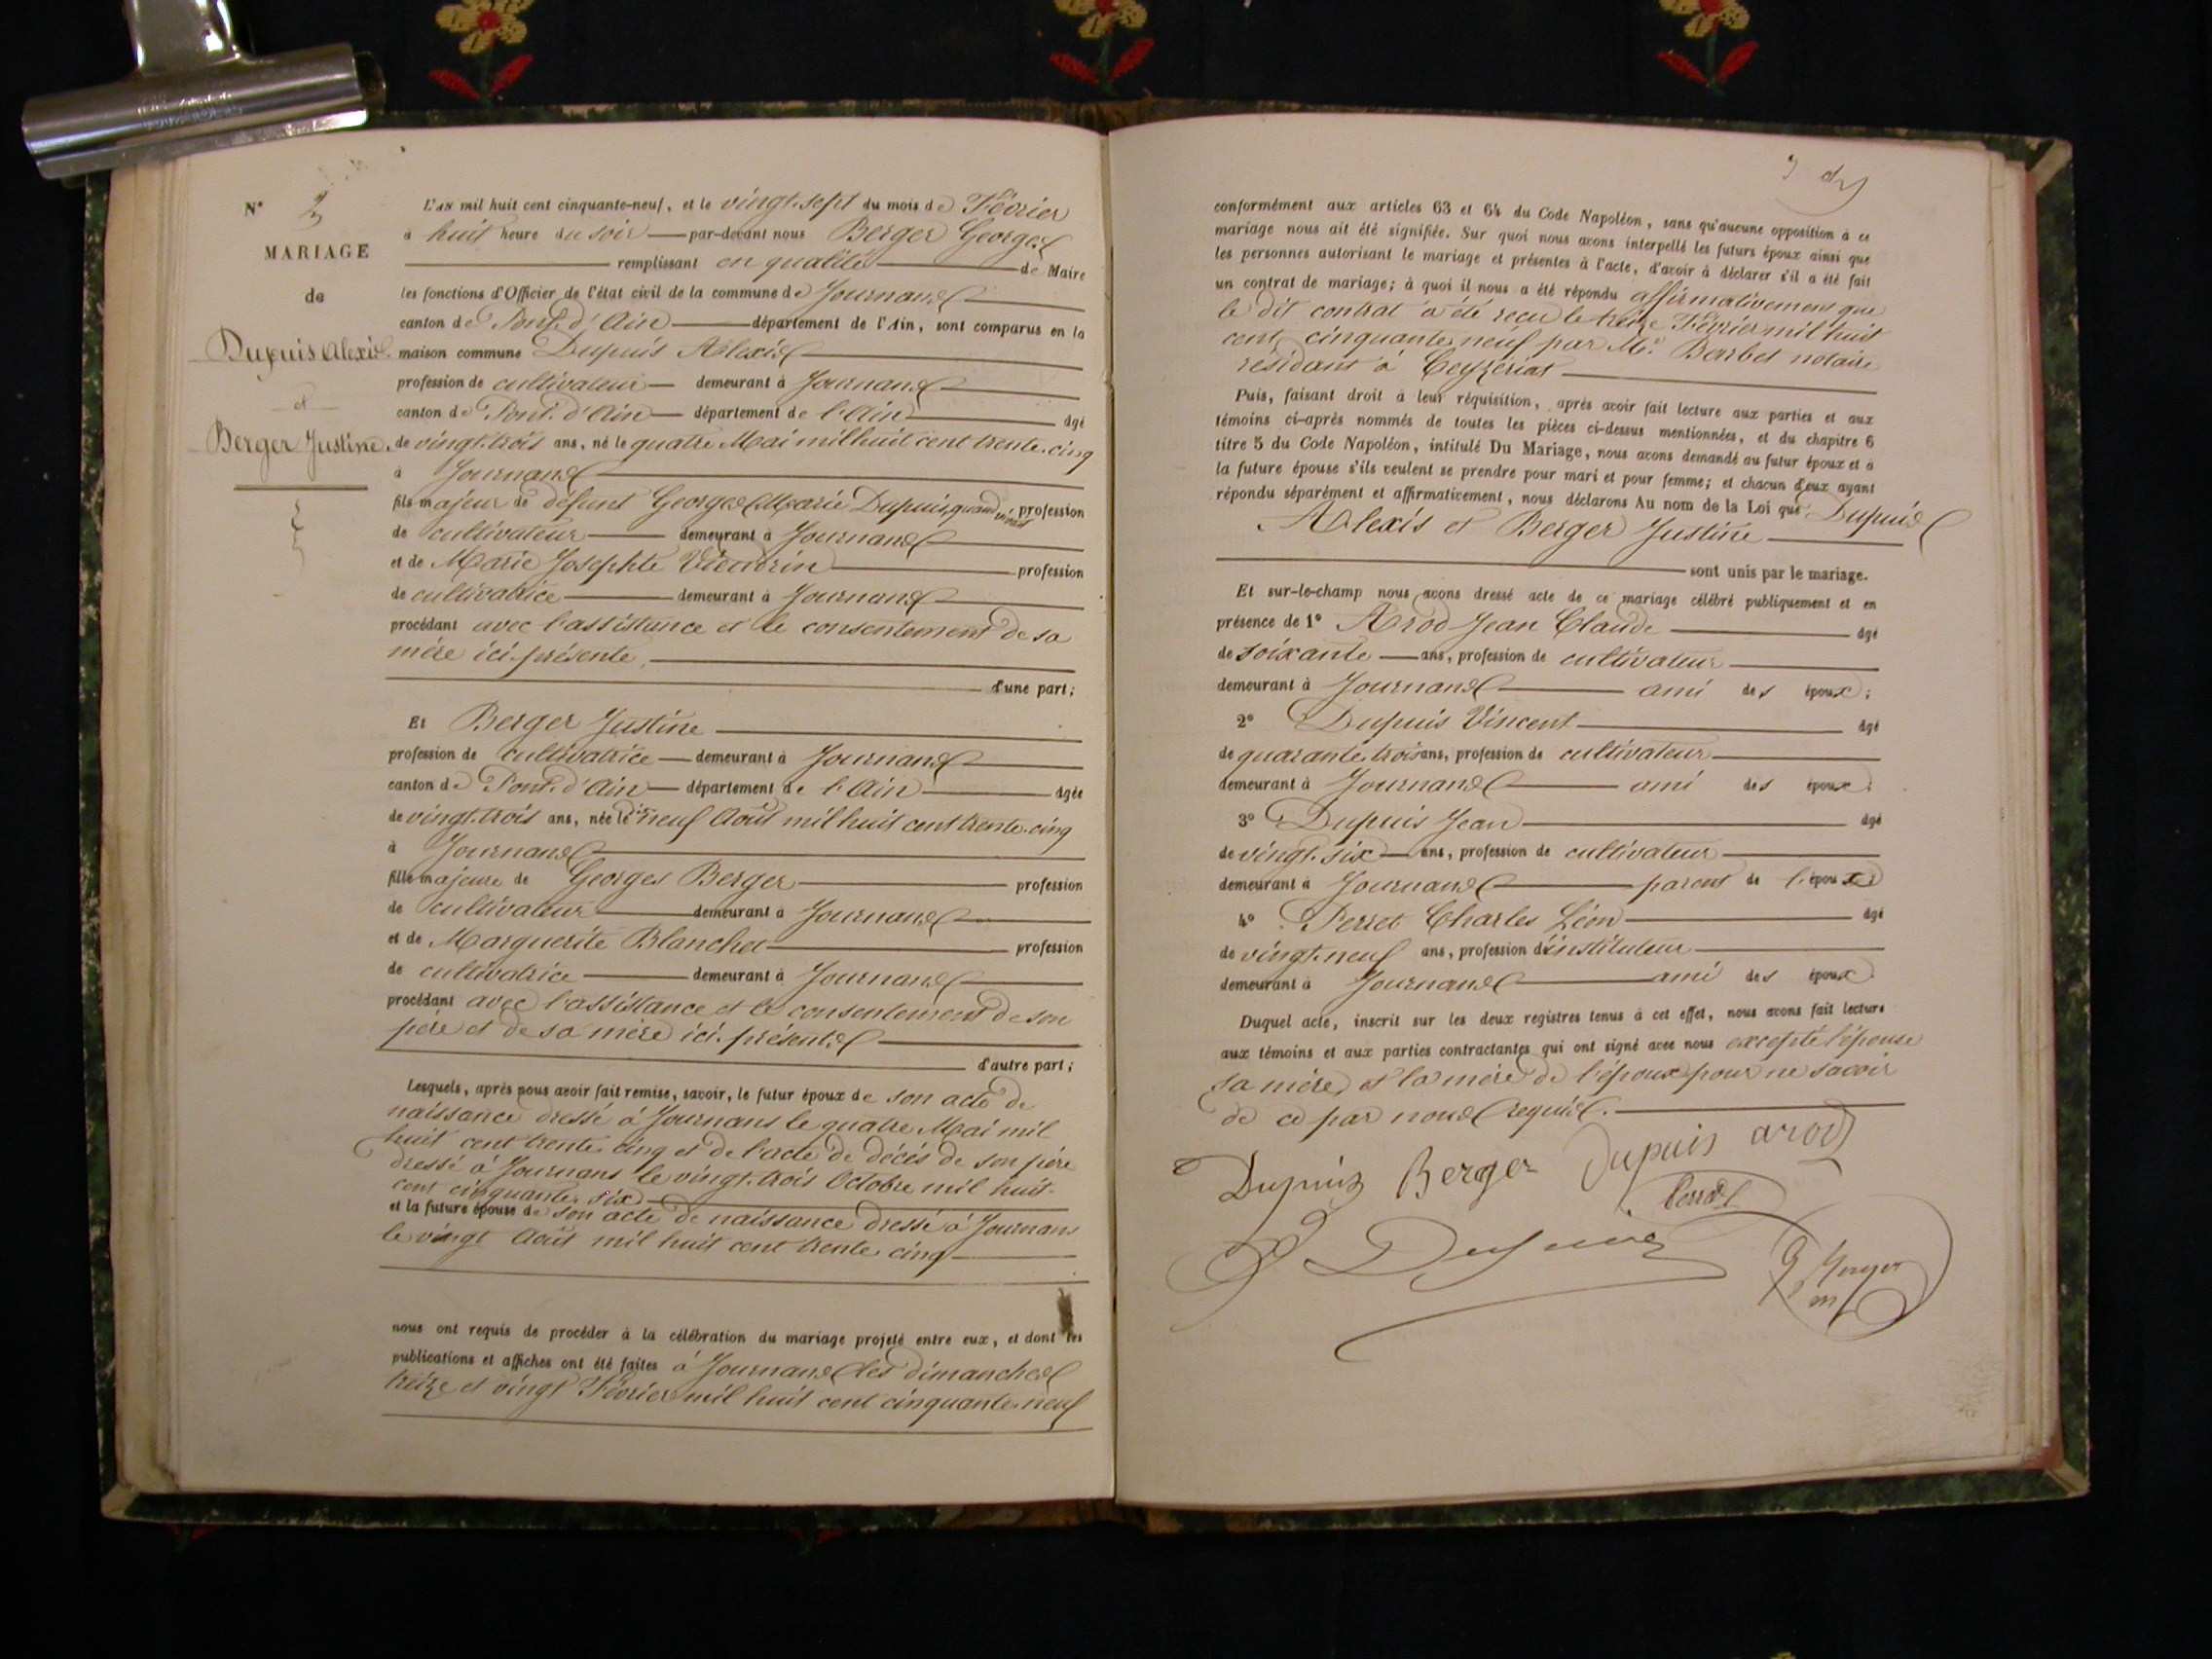 N° 2
MARIAGE
de
Dupuis Alexis
et
Berger Justine
L'AN mil huit cent cinquante-neuf, et le vingt-sept du mois de Février
à huit heure du soir par-devant nous Berger Georges
remplissant en qualité de Maire
les fonctions d'Officier de l'état civil de la commune de Journans
canton de Pont-d'Ain département de l'Ain, sont comparus en la
maison commune Dupuis Alexis
profession de cultivateur demeurant à Journans
canton de Pont-d'Ain département de l'Ain âgé
de vingt-trois ans, né le quatre Mai mil huit cent trente-cinq
à Journans
fils majeur de défunt Georges Marie Dupuis, quand vivait profession
de cultivateur demeurant à Journans
et de Marie Josephte profession
de cultivatrice demeurant à Journans
procédant avec l'assistance et le consentement de sa
mère ici-présente
d'une part;
Et Berger Justine
profession de cultivatrice demeurant à Journans
canton de Pont-d'Ain département de l'Ain âgée
de vingt-trois ans, née le dix-neuf Août mil huit cent trente-cinq
à Journans
fille majeure de Georges Berger profession
de cultivateur demeurant à Journans
et de Marguerite Blanchet profession
de cultivatrice demeurant à Journans
procédant avec l'assistance et le consentement de son
père et de sa mère ici-présents
d'autre part;
Lesquels, après nous avoir fait remise, savoir, le futur époux de son acte de
naissance dressé à Journans le quatre Mai mil
huit cent trente-cinq et de l'acte de décès de son père
dressé à Journans le vingt-trois Octobre mil huit-
cent cinquante-six
et la future épouse de son acte de naissance dressé à Journans
le vingt Août mil huit cent trente-cinq
nous ont requis de procéder à la célébration du mariage projeté entre eux, et dont les
publications et affiches ont été faites à Journans les dimanches
treize et vingt Février mil huit cent cinquante-neuf
conformément aux articles 63 et 64 du Code Napoléon, sans qu'aucune opposition à ce
mariage nous ait été signifiée. Sur quoi nous avons interpellé les futurs époux ainsi que
les personnes autorisant le mariage et présentes à l'acte, d'avoir à déclarer s'il a été fait
un contrat de mariage; à quoi il nous a été répondu affirmativement que
le dit contrat a été reçu le treize Février mil huit
cent cinquante-neuf par Me Barbet notaire
résidant à Ceyzériat
Puis, faisant droit à leur réquisition, après avoir fait lecture aux parties et aux
témoins ci-après nommés de toutes les pièces ci-dessus mentionnées, et du chapitre 6
titre 5 du Code Napoléon, intitulé Du Mariage, nous avons demandé au futur époux et à
la future épouse s'ils veulent se prendre pour mari et pour femme; et chacun d'eux ayant
répondu séparément et affirmativement, nous déclarons Au nom de la Loi que Dupuis
Alexis et Berger Justine
sont unis par le mariage.
Et sur-le-champ nous avons dressé acte de ce mariage célébré publiquement et en
présence de 1° Arod Jean Claude âgé
de soixante ans, profession de cultivateur
demeurant à Journans ami des époux;
2° Dupuis Vincent âgé
de quarante-trois ans, profession de cultivateur
demeurant à Journans ami des époux
3° Dupuis Jean âgé
de vingt-six ans, profession de cultivateur
demeurant à Journans parent de l'époux
4° Perret Charles Léon âgé
de vingt-neuf ans, profession d'instituteur
demeurant à Journans ami des époux
Duquel acte, inscrit sur les deux registres tenus à cet effet, nous avons fait lecture
aux témoins et aux parties contractantes qui ont signé avec nous excepté l'épouse
sa mère, et la mère de l'époux pour ne savoir
de ce par nous requis.
Dupuis Berger Dupuis arod
Perret
Dupuis
Berger